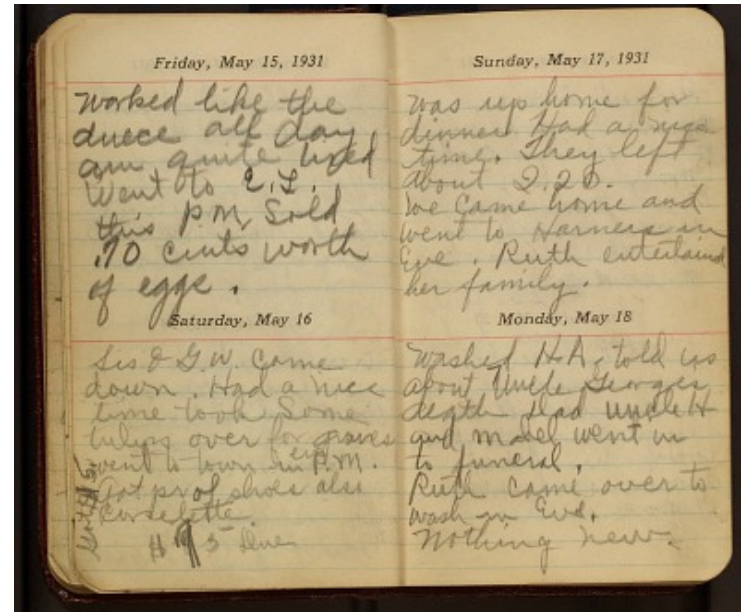 Friday, May 15, 1931
Worked like the
duece all day
am quite tired
Went to E.L.
this P.M. Sold
.70 cents worth
of eggs.
Saturday, May 16
Sis & G.W. came
down. Had a nice
time took some
tulips over for graves
went to town in P.M.
Got pr of shoes also
corselette.
5 Due
Sunday, May 17, 1931
Was up home for
dinner Had a nice
time. They left
about 2.20.
We came home and
went to Harners in
Eve. Ruth entertained
her family.
Monday, May 18
Washed H.A. told us
about Uncle Georges
death Dad Uncle H
and Mabel went in
to funeral.
Ruth came over to
wash in Eve.
Nothing new.